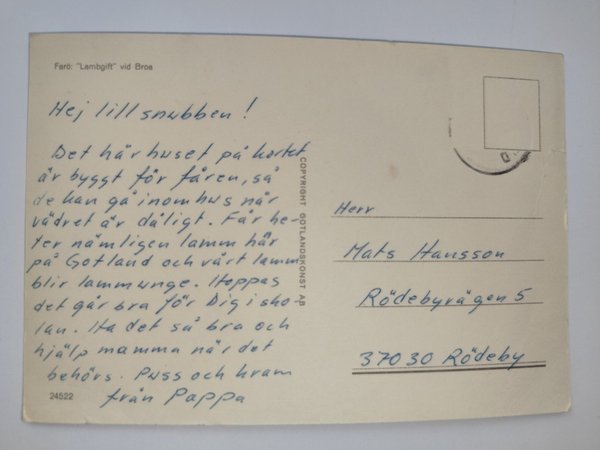 Farö: "Lambgift" vid Broa
Hej lill snubben!
Det här huset på kortet
är byggt för fåren, så
de kan gå inomhus när
vädret är dåligt. Får he-
ter nämligen lamm här
på Gotland och vårt lamm
blir lammunge. Hoppas
det går bra för Dig i sko-
lan. Ha det så bra och
hjälp mamma när det
behövs. Puss och kram
från Pappa
24522
COPYRIGHT GOTLANDSKONST AB
Herr
Mats Hansson
Rödebyvägen 5
370 30 Rödeby